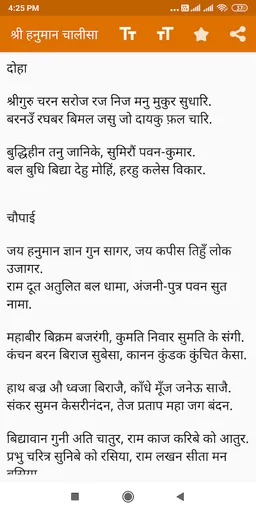 4:25 PM
श्री हनुमान चालीसा
दोहा
श्रीगुरु चरन सरोज रज निज मनु मुकुर सुधारि.
बरनउँ रघबर बिमल जसु जो दायकु फ़ल चारि.
बुद्धिहीन तनु जानिके, सुमिरौं पवन-कुमार.
बल बुधि बिद्या देहु मोहिं, हरहु कलेस विकार.
चौपाई
जय हनुमान ज्ञान गुन सागर, जय कपीस तिहुँ लोक
उजागर.
राम दूत अतुलित बल धामा, अंजनी-पुत्र पवन सुत
नामा.
महाबीर बिक्रम बजरंगी, कुमति निवार सुमति के संगी.
कंचन बरन बिराज सुबेसा, कानन कुंडक कुंचित केसा.
हाथ बज्र औ ध्वजा बिराजै, काँधे मूँज जनेऊ साजै.
संकर सुमन केसरीनंदन, तेज प्रताप महा जग बंदन.
बिद्यावान गुनी अति चातुर, राम काज करिबे को आतुर.
प्रभु चरित्र सुनिबे को रसिया, राम लखन सीता मन